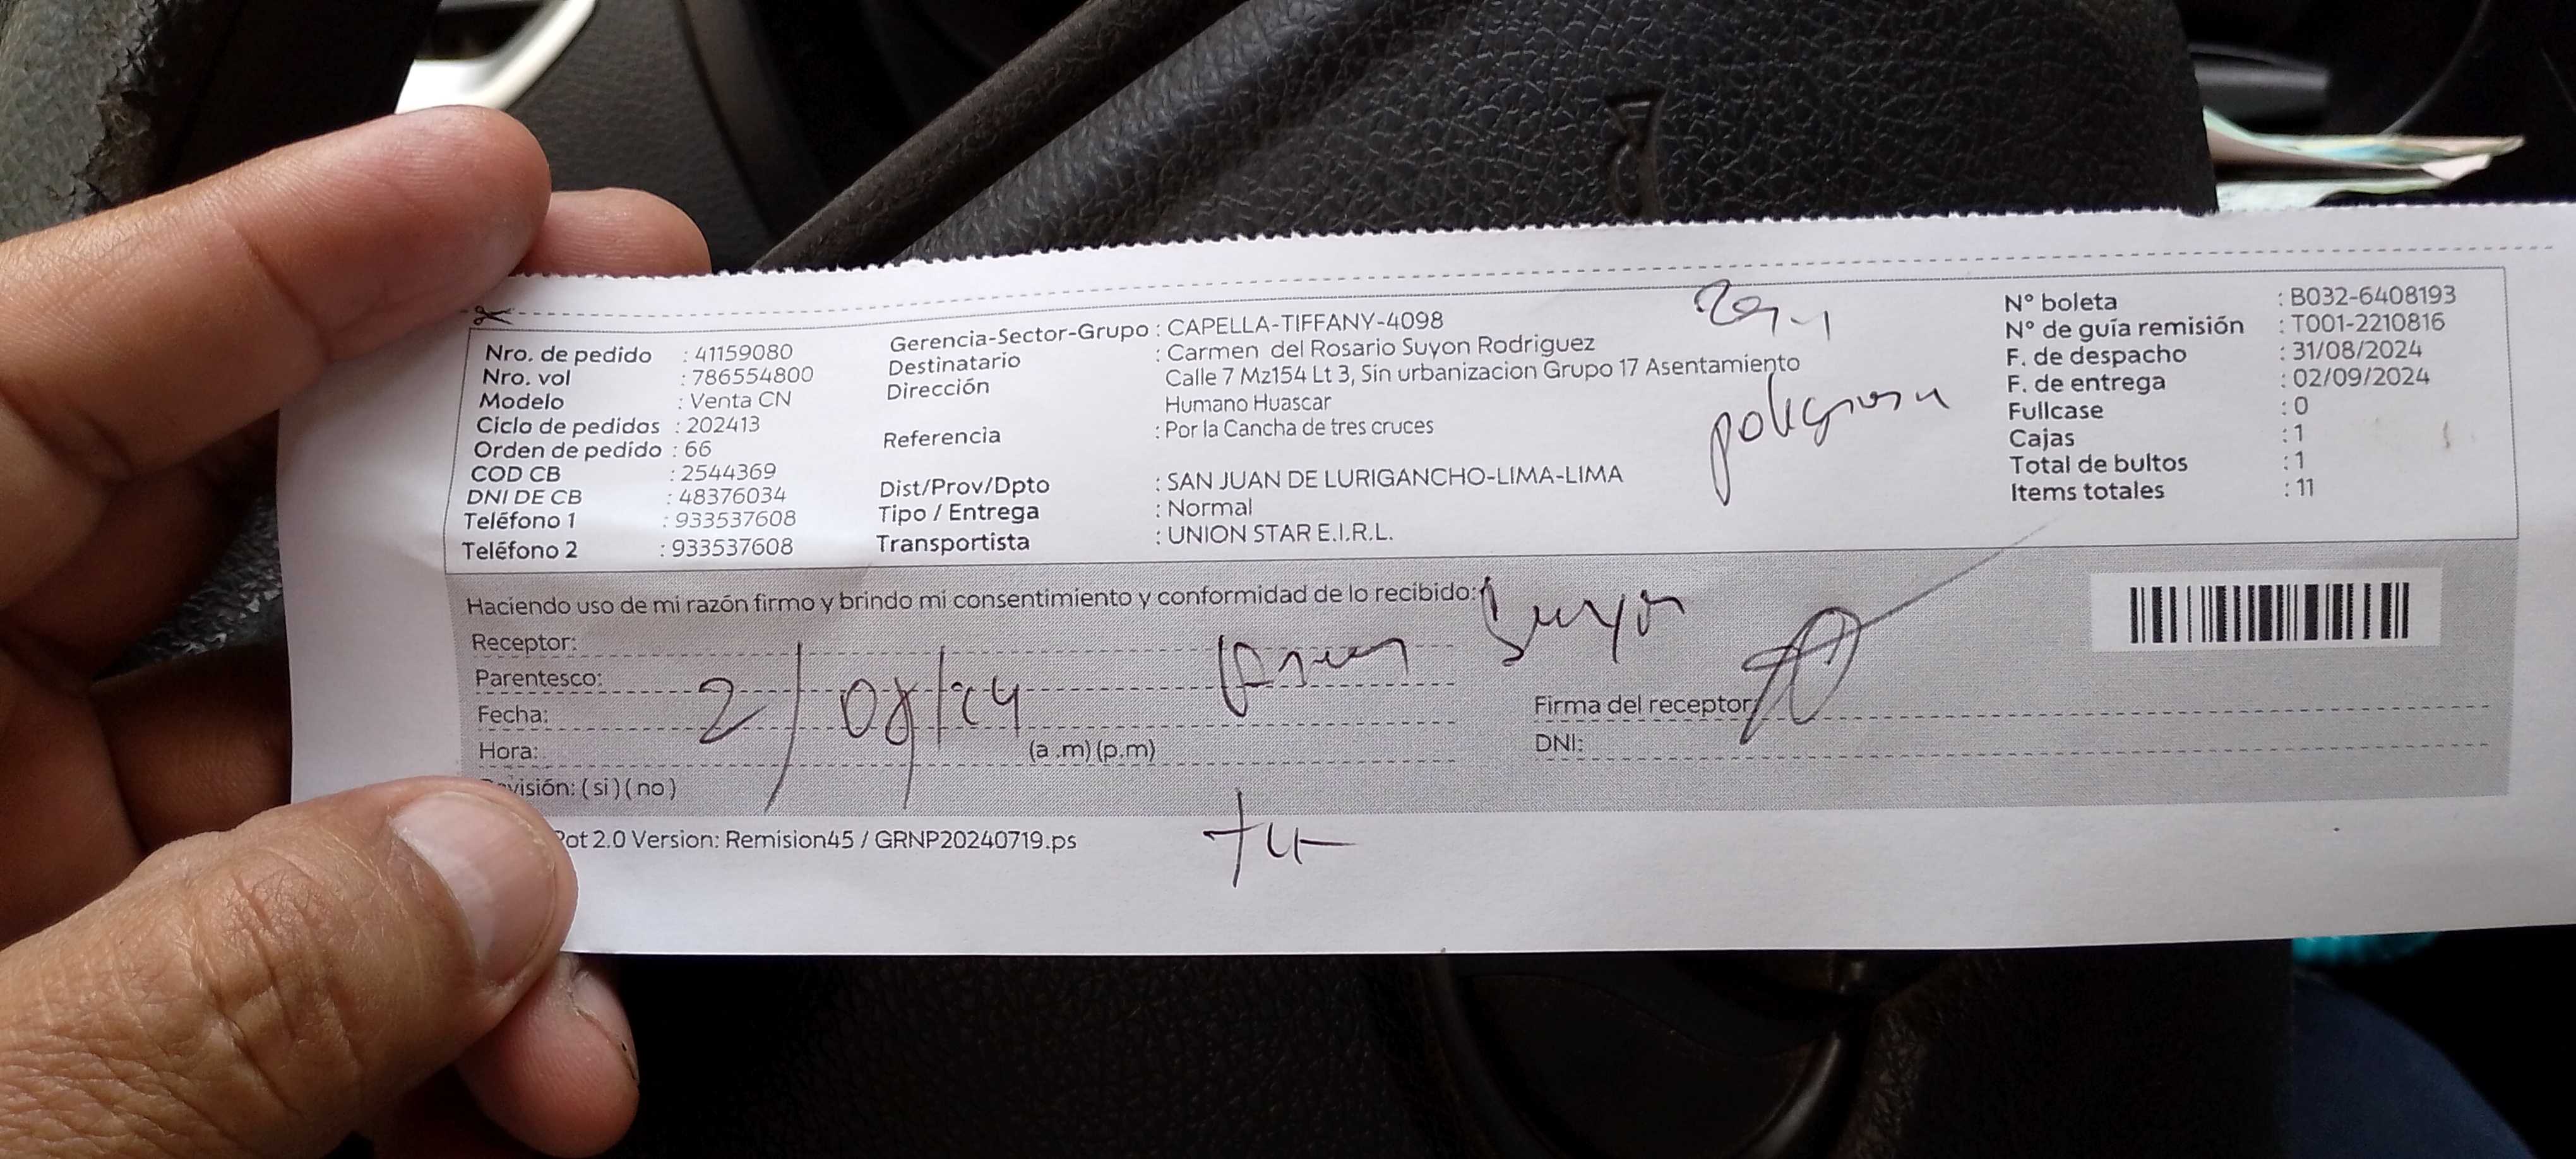 Nro. de pedido : 41159080
Nro. vol : 786554800
Modelo : Venta CN
Ciclo de pedidos : 202413
Orden de pedido : 66
COD CB : 2544369
DNI DE CB : 48376034
Teléfono 1 : 933537608
Teléfono 2 : 933537608
Gerencia-Sector-Grupo : CAPELLA-TIFFANY-4098
Destinatario : Carmen del Rosario Suyon Rodriguez
Dirección Calle 7 Mz154 Lt 3, Sin urbanizacion Grupo 17 Asentamiento
Humano Huascar
Referencia : Por la Cancha de tres cruces
Dist/Prov/Dpto : SAN JUAN DE LURIGANCHO-LIMA-LIMA
Tipo / Entrega : Normal
Transportista : UNION STAR E.I.R.L.
N° boleta : B032-6408193
N° de guía remisión : T001-2210816
F. de despacho : 31/08/2024
F. de entrega : 02/09/2024
Fullcase : 0
Cajas : 1
Total de bultos : 1
Items totales : 11
Haciendo uso de mi razón firmo y brindo mi consentimiento y conformidad de lo recibido:
Suyon
Receptor:
Parentesco:
2/08/24
Fecha:
Hora: (a .m) (p.m)
visión: ( si ) ( no )
Firma del receptor
DNI:
Pot 2.0 Version: Remision45 / GRNP20240719.ps